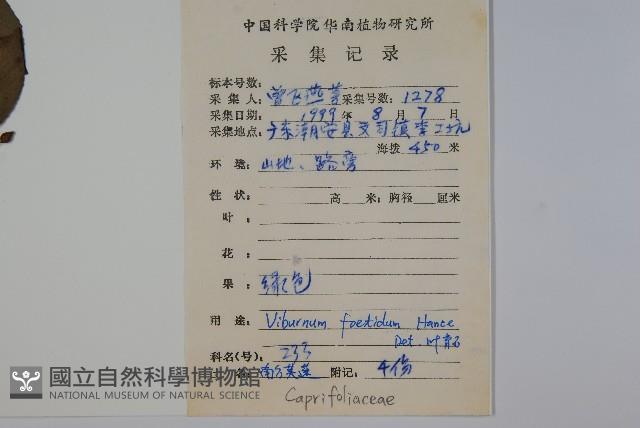 中国科学院华南植物研究所
采集记录
标本号数:
采集人: 曾飞燕等 采集号数: 1278
采集日期: 1999 年 8 月 7 日
采集地点: 广东潮安县文祠镇李工坑
海拨 450 米
环境: 山地、路旁
性状: 高 米; 胸径 厘米
叶:
花:
果: 绿色
用途: Viburnum foetidum Hance
Det. 叶育石
科名(号): 233
南方荚蒾 附记: 4份
Caprifoliaceae
國立自然科學博物館
NATIONAL MUSEUM OF NATURAL SCIENCE